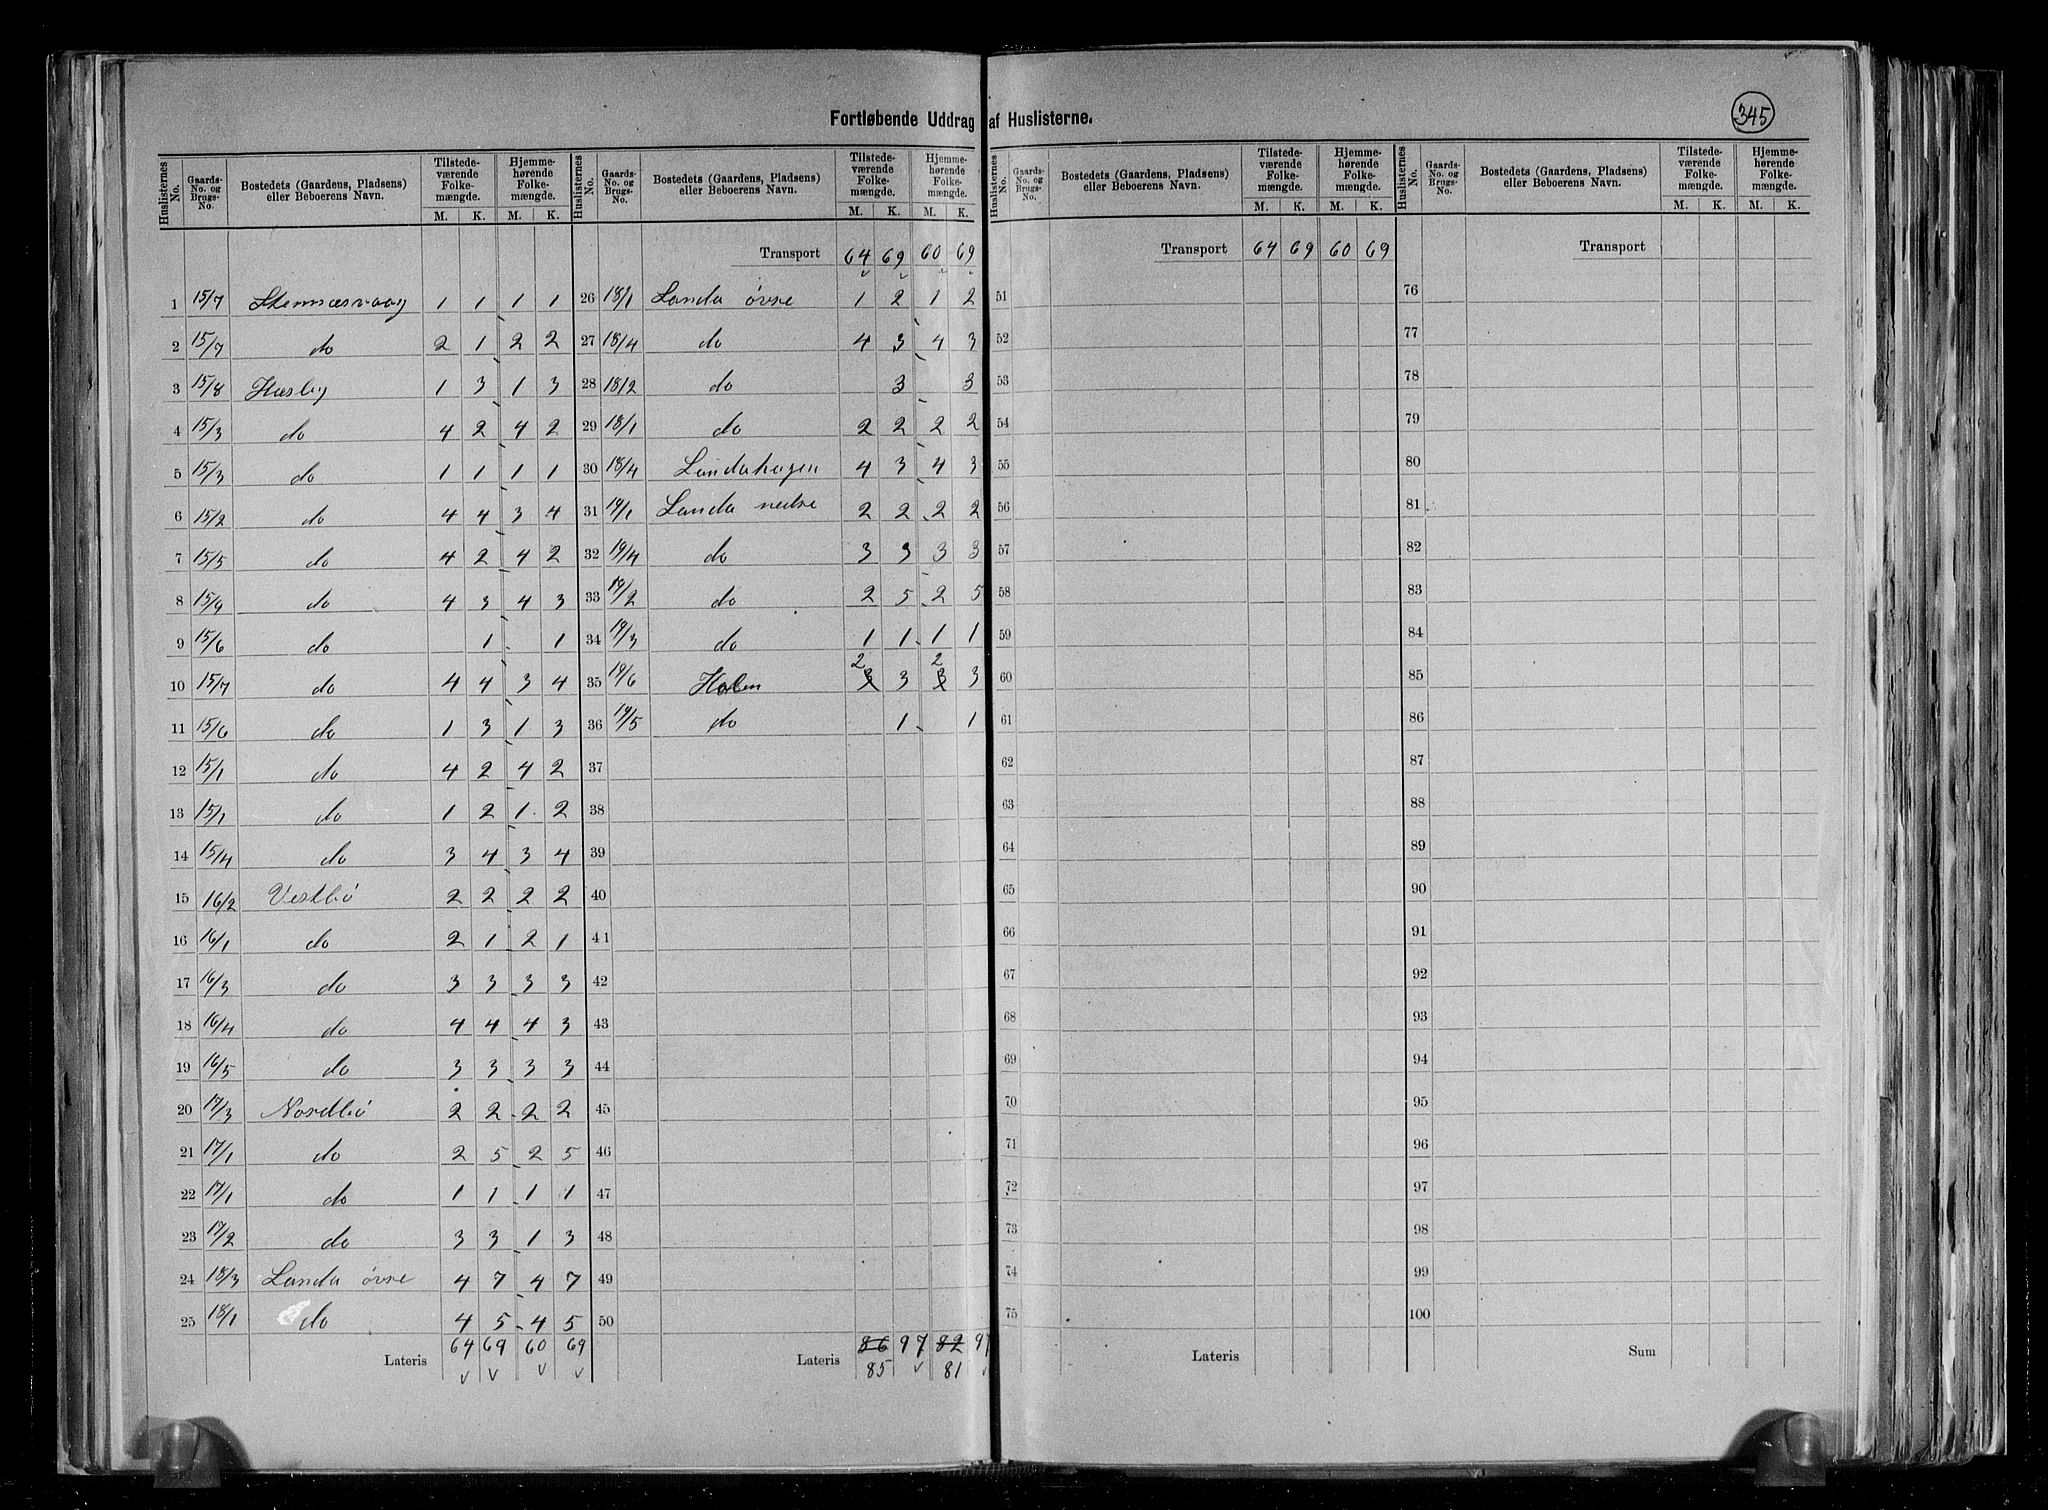 345
Fortløbende Uddrag af Huslisterne.
Huslisternes No. Gaards-No. og Brugs-No. Bostedets (Gaardens, Pladsens) eller Beboerens Navn. Tilstedeværende Folkemængde. M. K. Hjemmehørende Folkemængde. M. K.
1 15/7 1 1 1 1
2 15/7 do 2 1 2 2
3 15/8 Hæsby 1 3 1 3
4 15/3 do 4 2 4 2
5 15/3 do 1 1 1 1
6 15/2 do 4 4 3 4
7 15/5 do 4 2 4 2
8 15/9 do 4 3 4 3
9 15/6 do 1 1
10 15/7 do 4 4 3 4
11 15/6 do 1 3 1 3
12 15/1 do 4 2 4 2
13 15/1 do 1 2 1 2
14 15/4 do 3 4 3 4
15 16/2 Vestbö 2 2 2 2
16 16/1 do 2 1 2 1
17 16/3 do 3 3 3 3
18 16/4 do 4 4 4 3
19 16/5 do 3 3 3 3
20 17/3 Nordbö 2 2 2 2
21 17/1 do 2 5 2 5
22 17/1 do 1 1 1 1
23 17/2 do 3 3 1 3
24 18/3 Landa övre 4 7 4 7
25 18/1 do 4 5 4 5
Lateris 64 69 60 69
Huslisternes No. Gaards-No. og Brugs-No. Bostedets (Gaardens, Pladsens) eller Beboerens Navn. Tilstedeværende Folkemængde. M. K. Hjemmehørende Folkemængde. M. K.
Transport 64 69 60 69
26 18/1 Landa övre 1 2 1 2
27 18/4 do 4 3 4 3
28 18/2 do 3 3
29 18/1 do 2 2 2 2
30 18/4 Landahagen 4 3 4 3
31 19/1 Landa nedre 2 2 2 2
32 19/4 do 3 3 3 3
33 19/2 do 2 5 2 5
34 19/3 do 1 1 1 1
35 19/6 Holen 2 3 3 2 3 3
36 19/5 do 1 1
37
38
39
40
41
42
43
44
45
46
47
48
49
50
Lateris 86 97 82 97
85 81
Huslisternes No. Gaards-No. og Brugs-No. Bostedets (Gaardens, Pladsens) eller Beboerens Navn. Tilstedeværende Folkemængde. M. K. Hjemmehørende Folkemængde. M. K.
Transport 64 69 60 69
51
52
53
54
55
56
57
58
59
60
61
62
63
64
65
66
67
68
69
70
71
72
73
74
75
Lateris
Huslisternes No. Gaards-No. og Brugs-No. Bostedets (Gaardens, Pladsens) eller Beboerens Navn. Tilstedeværende Folkemængde. M. K. Hjemmehørende Folkemængde. M. K.
Transport
76
77
78
79
80
81
82
83
84
85
86
87
88
89
90
91
92
93
94
95
96
97
98
99
100
Sum